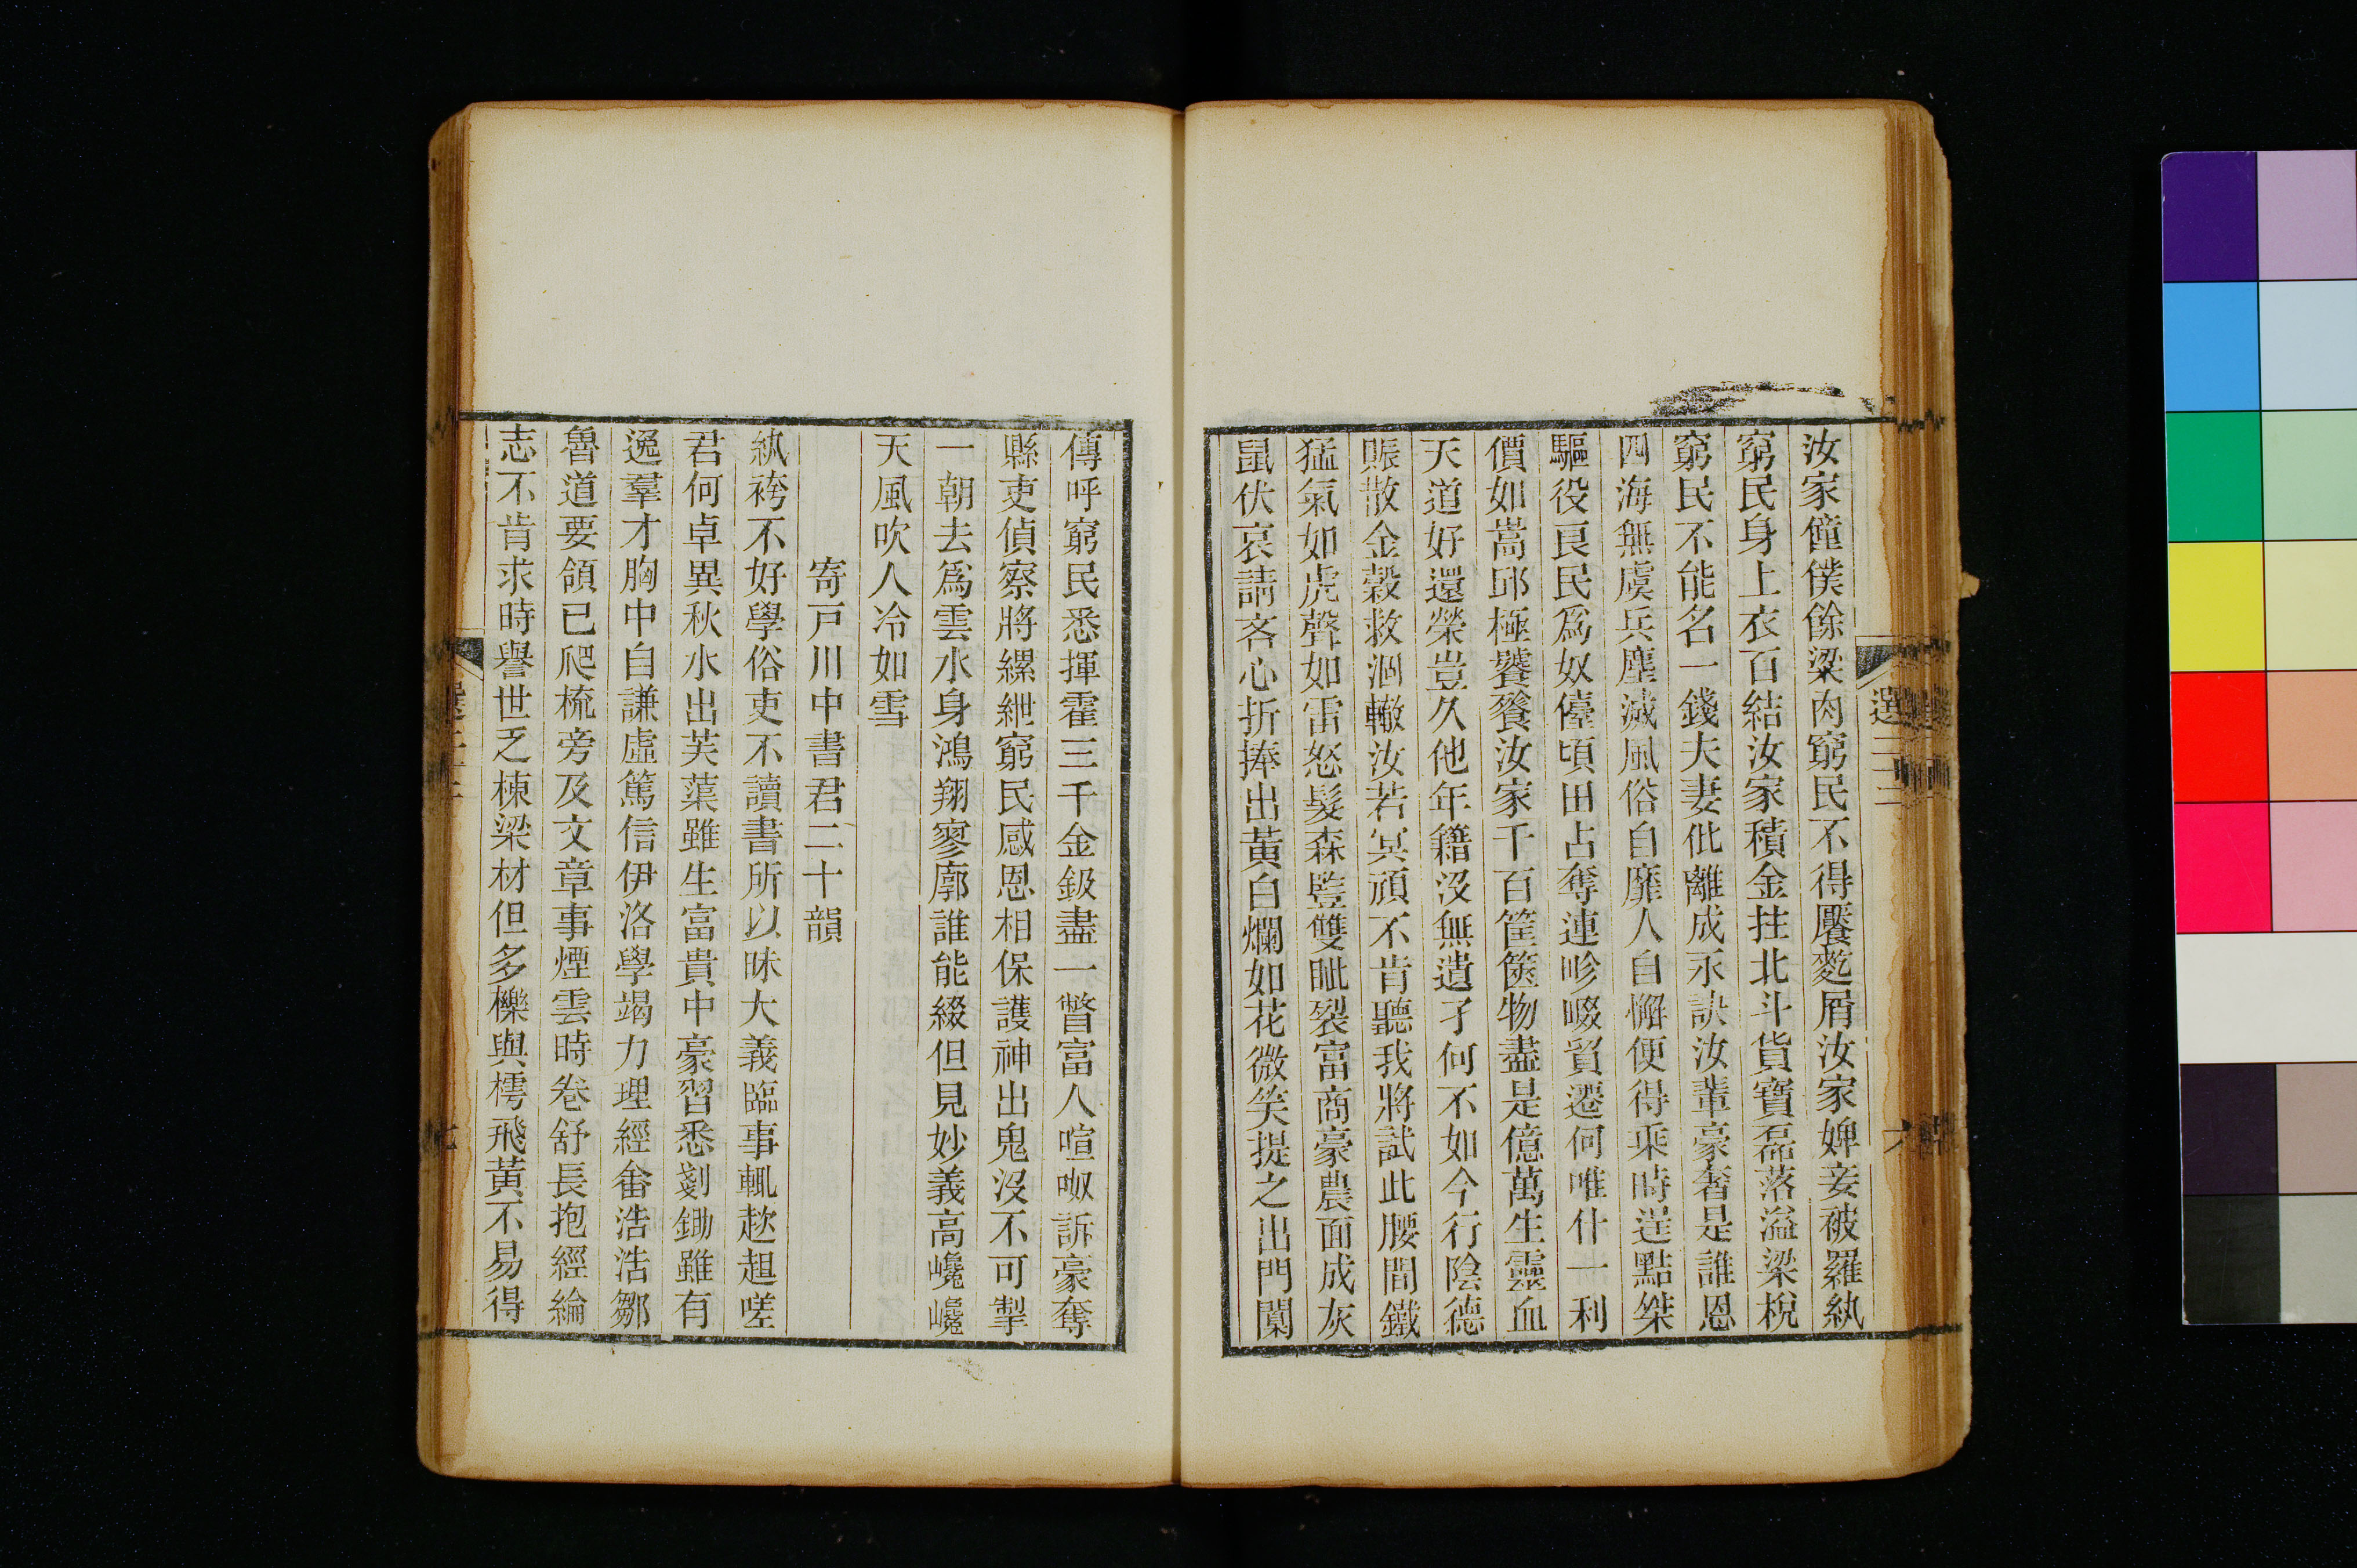 汝家僮僕餘梁肉窮民不得饜麧屑汝家婢妾被羅紈
窮民身上衣百結汝家積金拄北斗貨寶磊落溢梁梲
窮民不能名一錢夫妻仳離成永訣汝輩豪奢是誰恩
四海無虞兵塵滅風俗自靡人自懈便得乘時逞黠桀
驅役良民爲奴儓頃田占奪連畛畷貿遷何唯什一利
價如嵩邱極饕餮汝家千百筐篋物盡是億萬生靈血
天道好還榮豈久他年籍沒無遺孑何不如今行陰德
賑散金穀救涸轍汝若冥頑不肯聽我將試此腰間鐵
猛氣如虎聲如雷怒髮森豎雙眦裂富商豪農面成灰
鼠伏哀請吝心折捧出黃白爛如花微笑提之出門闑
傳呼窮民悉揮霍三千金鈒盡一瞥富人喧呶訴豪奪
縣吏偵察將縲紲窮民感恩相保護神出鬼沒不可掣
一朝去爲雲水身鴻翔寥廓誰能綴但見妙義高巉巉
天風吹人冷如雪
寄戸川中書君二十韻
紈袴不好學俗吏不讀書所以昧大義臨事輒趑趄嗟
君何卓異秋水出芙蕖雖生富貴中豪習悉剗鋤雖有
逸羣才胸中自謙虛篤信伊洛學竭力理經畬浩浩鄒
魯道要領已爬梳旁及文章事煙雲時卷舒長抱經綸
志不肯求時譽世乏棟梁材但多櫟與樗飛黃不易得
選二十三
六
七